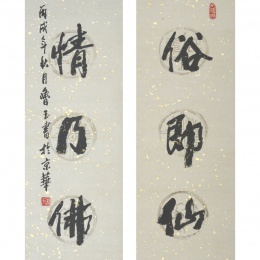 俗即仙
情乃佛
丙戌年秋月鲁玉書於京華